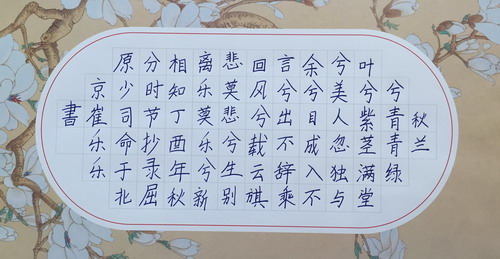 秋兰
兮青青绿
叶兮紫茎满堂
兮美人忽独与
余兮目成入不
言兮出不辞乘
回风兮载云旗
悲莫悲兮生别
离乐莫乐兮新
相知丁酉年秋
分时节抄录屈
原少司命于北
京崔乐乐
書